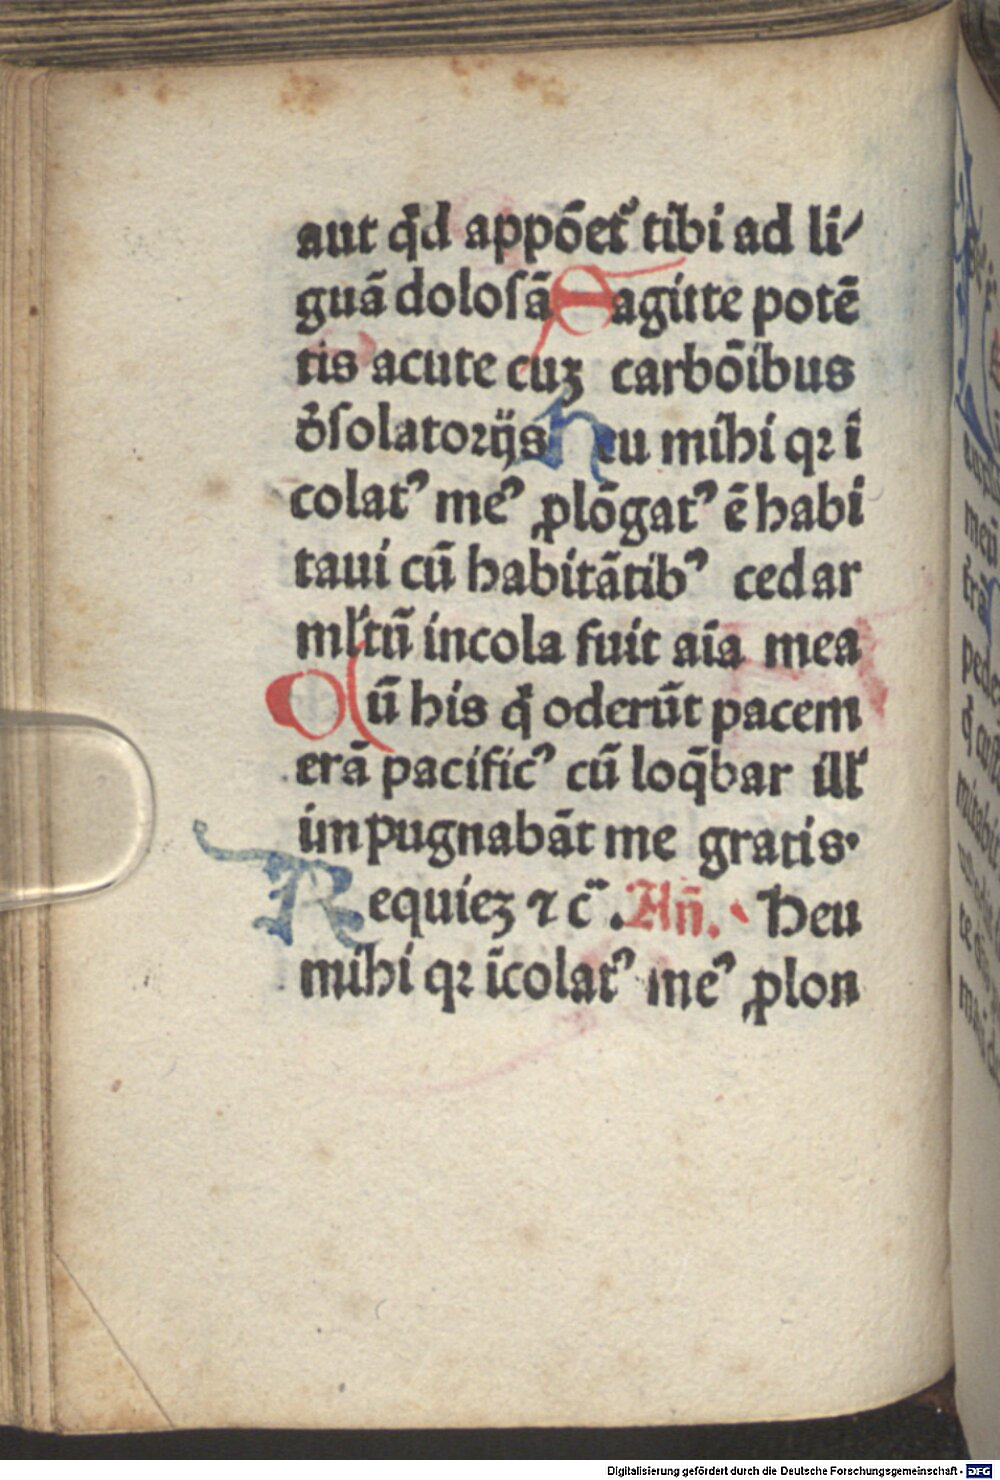 aut qd̄ appōet᷑ tibi ad li⸗
guā doloſā Sagitte potē
tis acute cuꝫ carbōibus
ꝺ̄ſolatoꝛijs Heu mihi qꝛ ī
colatꝰ meꝰ ꝓlōgatꝰ ē habi
taui cū habitātibꝰ cedar
ml̓tū incola fuit aīa mea
Cū his q̄ oderūt pacem
erā pacificꝰ cū loq̄bar ill̓
impugnabāt me gratis.
Requieꝫ ⁊ c̄. An̄. Heu
mihi qꝛ īcolatꝰ meꝰ ꝓlon
Digitalisierung gefördert durch die Deutsche Forschungsgemeinschaft - DFG